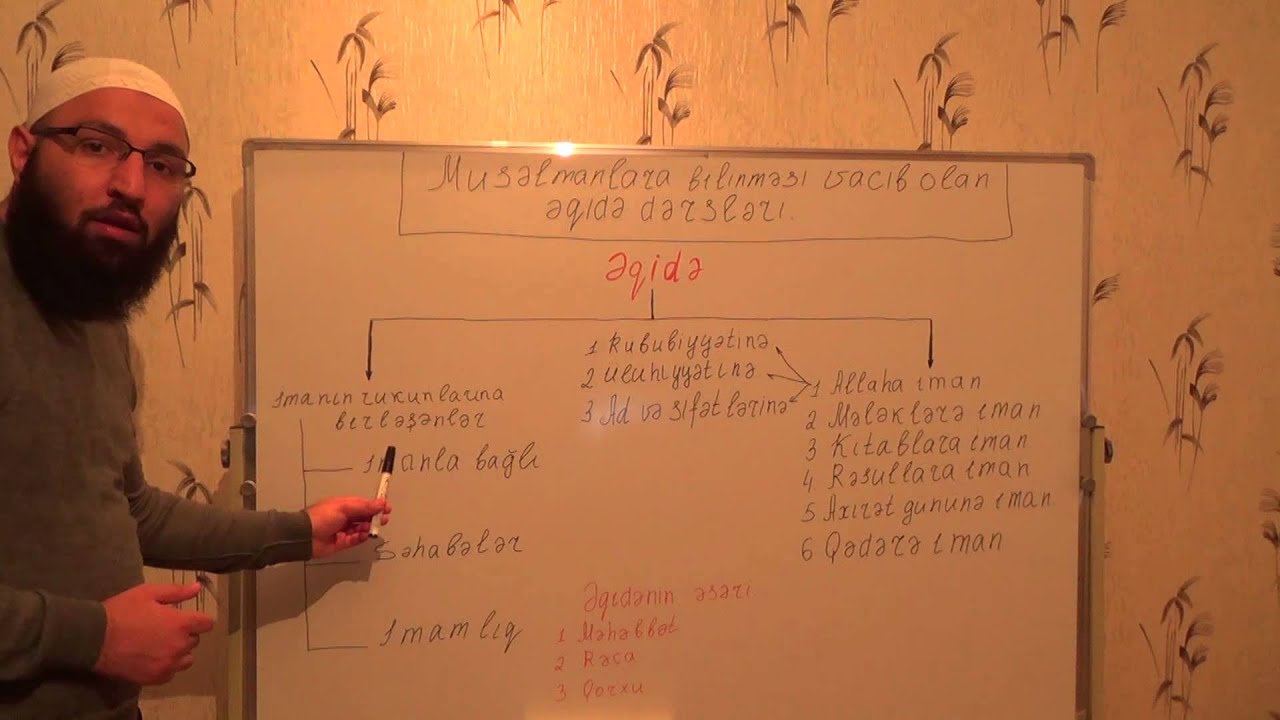 Musəlmanlara bilinməsi vacib olan
əqidə dərsləri.
Əqidə
imanın rukunlarına
birləşənlər
imanla bağlı
Səhabələr
imamlıq
1 Rububiyyətinə
2 uluhiyyətinə
3 Ad və sifətlərinə
1 Allaha iman
2 Mələklərə iman
3 Kitablara iman
4 Rəsullara iman
5 Axirət gununə iman
6 Qədərə iman
Əqidənin əsəri.
1 Məhəbbət
2 Rəca
3 Qorxu